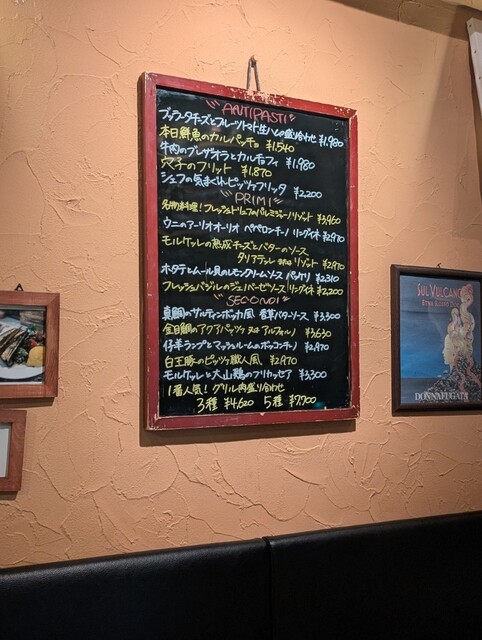 ANTIPASTI
ブッラータチーズとフルーツトマト生ハムの盛り合わせ ¥1,980
本日鮮魚のカルパッチョ ¥1,540
牛肉のブレザオラとカルチョフィ ¥1,980
穴子のフリット ¥1,870
シェフの気まぐれピッツァフリッタ ¥2,200
PRIMI
名物料理！フレッシュトリュフのパルミジャーノリゾット ¥3,960
ウニのアーリオオーリオ ペペロンチーノ リングイネ ¥2,970
モルケッレの熟成チーズとバターのソース
タリアテッレ または リゾット ¥2,970
ホタテとムール貝のレモンクリームソース パッケリ ¥2,310
フレッシュバジルのジェノベーゼソース リングイネ ¥2,200
SECONDI
真鯛のサルティンボッカ風 香草バターソース ¥3,300
金目鯛のアクアパッツァ または アルフォルノ ¥3,630
仔羊ランプとマッシュルームのボッコンチーノ ¥2,970
白王豚のピッツァ職人風 ¥2,970
モルケッレと大山鶏のフリカッセア ¥3,300
1番人気！グリル肉盛り合わせ
3種 ¥4,620 5種 ¥7,700
SUL VULCANO
ETNA ROSSO DOC
DONNAFUGATA